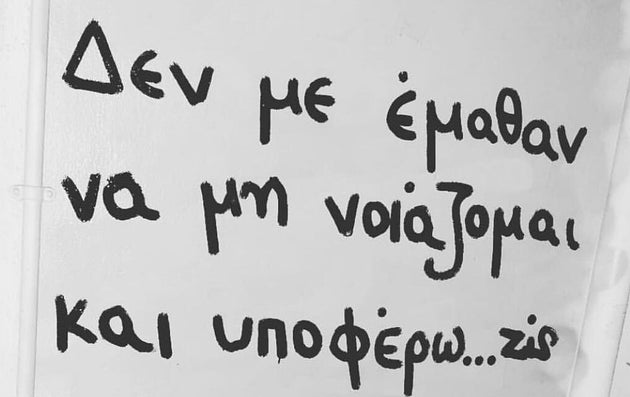 Δεν με έμαθαν
να μη νοιάζομαι
και υποφέρω... τζίς